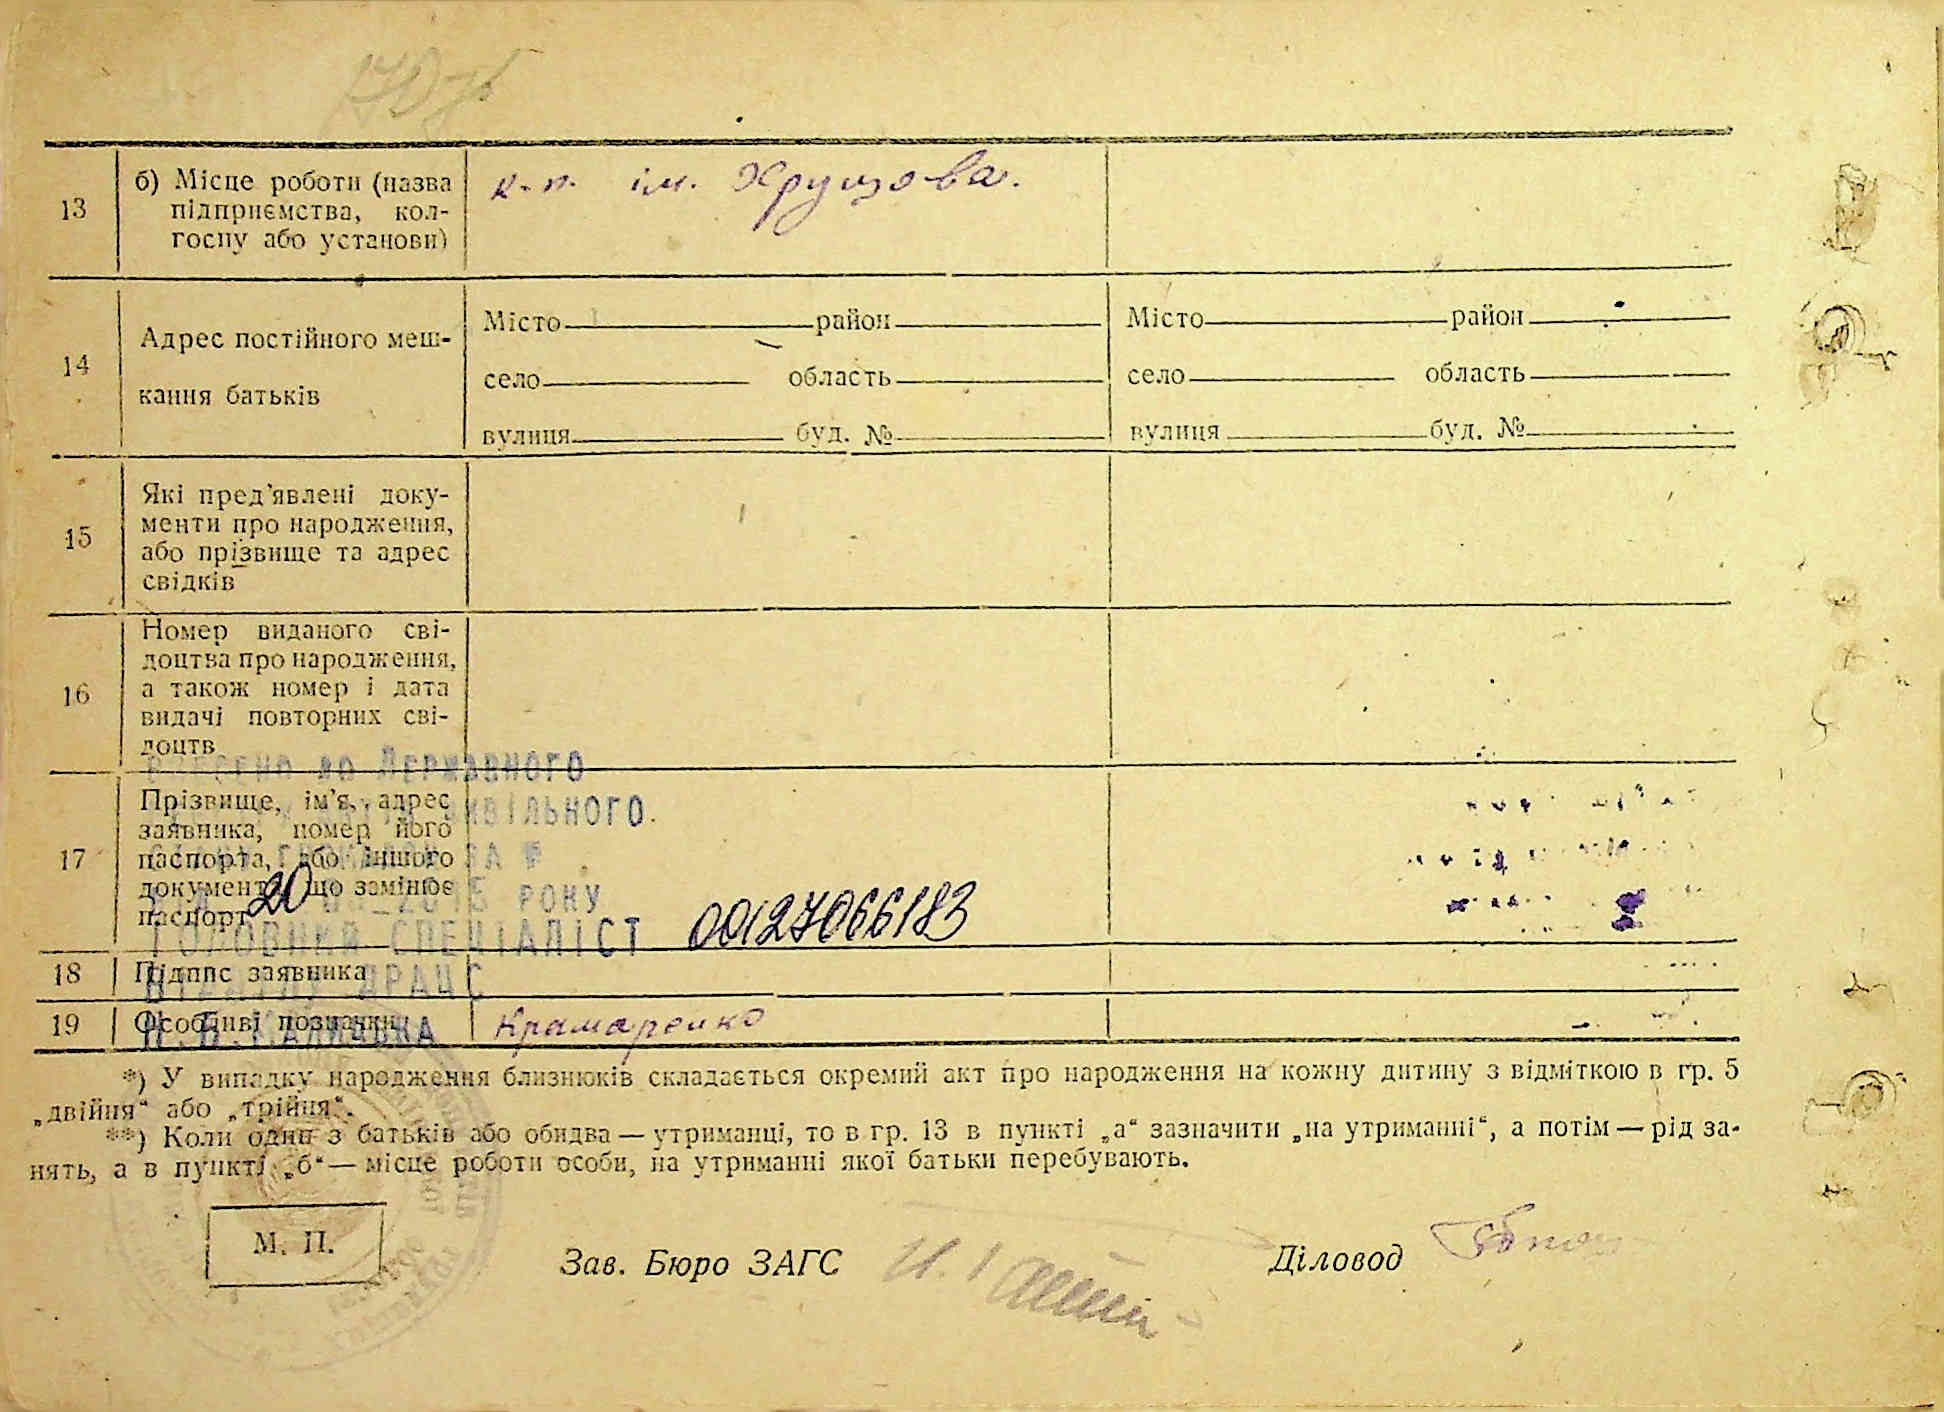 13
б) Місце роботи (назва
підприємства, кол-
госпу або установи)
к-п. ім. Хрущова.
14
Адрес постійного меш-
кання батьків
Місто район
село область
вулиця буд. №
Місто район
село область
вулиця буд. №
15
Які пред'явлені доку-
менти про народження,
або прізвище та адрес
свідків
16
Номер виданого сві-
доцтва про народження,
а також номер і дата
видачі повторних сві-
доцтв
17
Прізвище, ім'я, адрес
заявника, номер його
паспорта, або іншого
документа, що замінює
паспорт
ВНЕСЕНО ДО ДЕРЖАВНОГО
ЦИВІЛЬНОГО
ЗА №
20 2015 РОКУ
ГОЛОВНИЙ СПЕЦІАЛІСТ 00127066183
ДРАЦС
18
Підпис заявника
19
Особливі позначки
Крамаренко
*) У випадку народження близнюків складається окремий акт про народження на кожну дитину з відміткою в гр. 5
„двійня“ або „трійня“.
**) Коли один з батьків або обидва — утриманці, то в гр. 13 в пункті „а“ зазначити „на утриманні“, а потім — рід за-
нять, а в пункті „б“ — місце роботи особи, на утриманні якої батьки перебувають.
М. П.
Зав. Бюро ЗАГС
Діловод